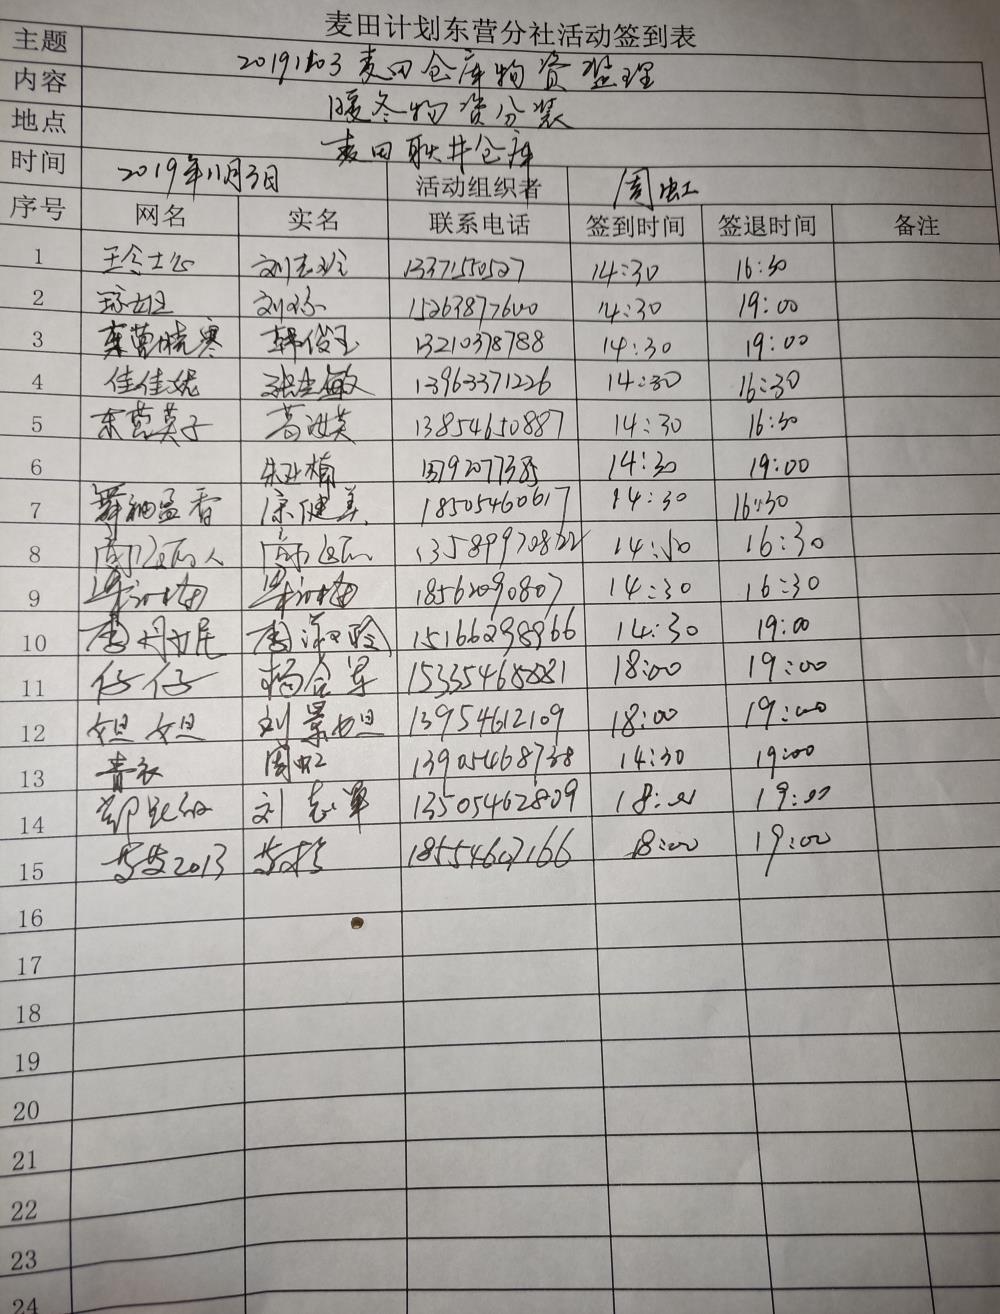 麦田计划东营分社活动签到表
主题 20191103麦田仓库物资整理
内容 暖冬物资分装
地点 麦田耿井仓库
时间 2019年11月3日 活动组织者 周虹
序号 网名 实名 联系电话 签到时间 签退时间 备注
1 刘志玲 13371550527 14:30 16:30
2 15263877600 14:30 19:00
3 东营晓寒 韩俊玉 13210378788 14:30 19:00
4 佳佳妮 张志敏 13963371226 14:30 16:30
5 东营英子 葛汝英 13854650887 14:30 16:30
6 14:30 19:00
7 康健美 18505460617 14:30 16:30
8 14:30 16:30
9 18562090807 14:30 16:30
10 15166298966 14:30 19:00
11 仔仔 杨合军 15335468881 18:00 19:00
12 妲妲 刘景妲 13954612109 18:00 19:00
13 青衣 周虹 13905468738 14:30 19:00
14 刘志军 13505462809 18:00 19:00
15 18554607166 18:00 19:00
16
17
18
19
20
21
22
23
24